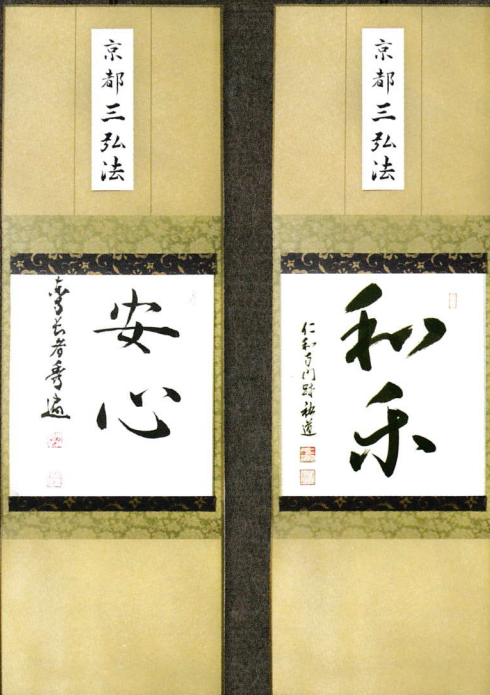 京都三弘法
和楽
仁和寺門跡祐道
京都三弘法
安心
東寺長者秀遍